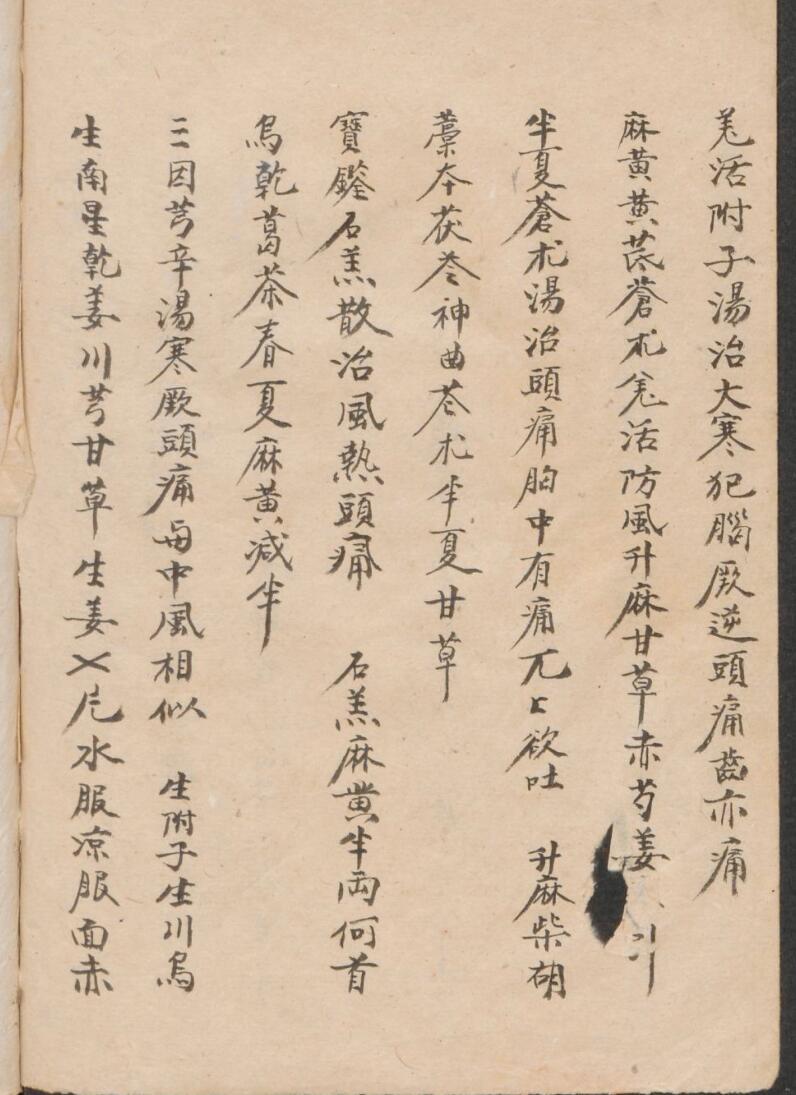 羌活附子湯治大寒犯腦厥逆頭痛齒亦痛
麻黄黄芪蒼朮羌活防風升麻甘草赤芍姜
半夏蒼朮湯治頭痛胸中有痛兀上欲吐 升麻柴胡
藁本茯苓神曲苍朮半夏甘草
寶鑑石羔散治風熱頭痛 石羔麻黄半両何首
烏乾葛茶春夏麻黄減半
三因芎辛湯寒厥頭痛与中風相似 生附子生川烏
生南星乾姜川芎甘草生姜㐅片水服凉服面赤